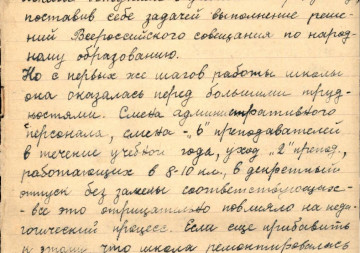 поставив себе задачей выполнение реше-
ний Всероссийского совещания по народ-
ному образованию.
Но с первых же шагов работы школы
она оказалась перед большими труд-
ностями. Смена административного
персонала, смена - "6" преподавателей
в течение учебного года, уход "2" препод.,
работающих в 8-10 кл., в декретный
отпуск без замены соответствующей
- все это отрицательно повлияло на педа-
гогический процесс. Если еще прибавить
к этому что школа ремонтировалась